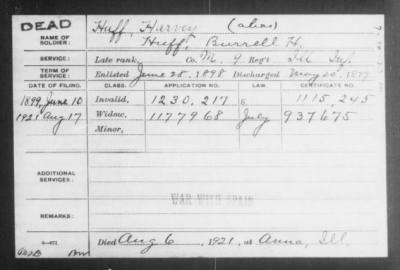 DEAD
NAME OF SOLDIER:
Huff, Harvey (alias)
Huff, Burrell H.
SERVICE:
Late rank, Co. M, 9 Reg't Ill Inf.
TERM OF SERVICE:
Enlisted June 28, 1898 Discharged May 20, 1899
DATE OF FILING. CLASS. APPLICATION NO. LAW. CERTIFICATE NO.
1899, June 10 Invalid, 1230,217 G 1115,245
1921 Aug 17 Widow, 1177968 July 937675
Minor,
ADDITIONAL SERVICES:
WAR WITH SPAIN
REMARKS:
Died Aug 6, 1921, at Anna, Ill.